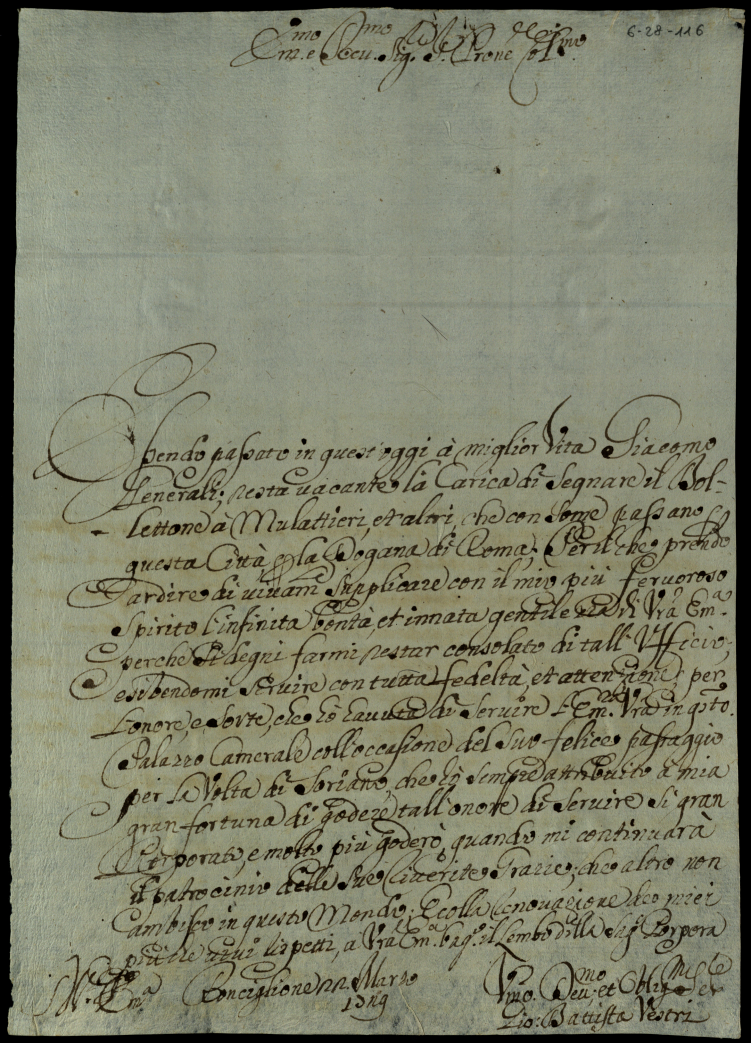 6-28-116
Em.mo e Rev.mo Sig.r Sig.r Prone Col.mo
Essendo passato in quest'oggi à miglior Vita Giacomo
Generali; resta vacante la Carica di Segnare il Bol-
lettone à Mulattieri, et altri, che con some passano p
questa Città p la Dogana di Roma; Perilche prendo
l'ardire di vivam.te supplicare con il mio più fervoroso
spirito l'infinita bontà, et innata gentilezza di Vra Em.a
perche si degni farmi restar consolato di tall'Ufficio,
esibendomi servire con tutta fedeltà, et attenzione; per
l'onore, e sorte, che hò havuta di servire l'Em. Vra in q.sto
Palazzo Camerale coll'occasione del suo felice passaggio
per la Volta di Soriano, che hò sempre attribuito à mia
gran fortuna di godere tall'onore di servire si gran
Porporato, e molto più goderò, quando mi continuarà
il patrocinio delle sue Grazie; che altro non
ambisco in questo Mondo; E colla rinovazione de miei
rispetti, a Vra Em.a bagio il Lembo della Sag.a Porpora
Ronciglione 22 Marzo
Vmo Dev.mo et Oblig.mo Ser
Gio: Battista Vestri